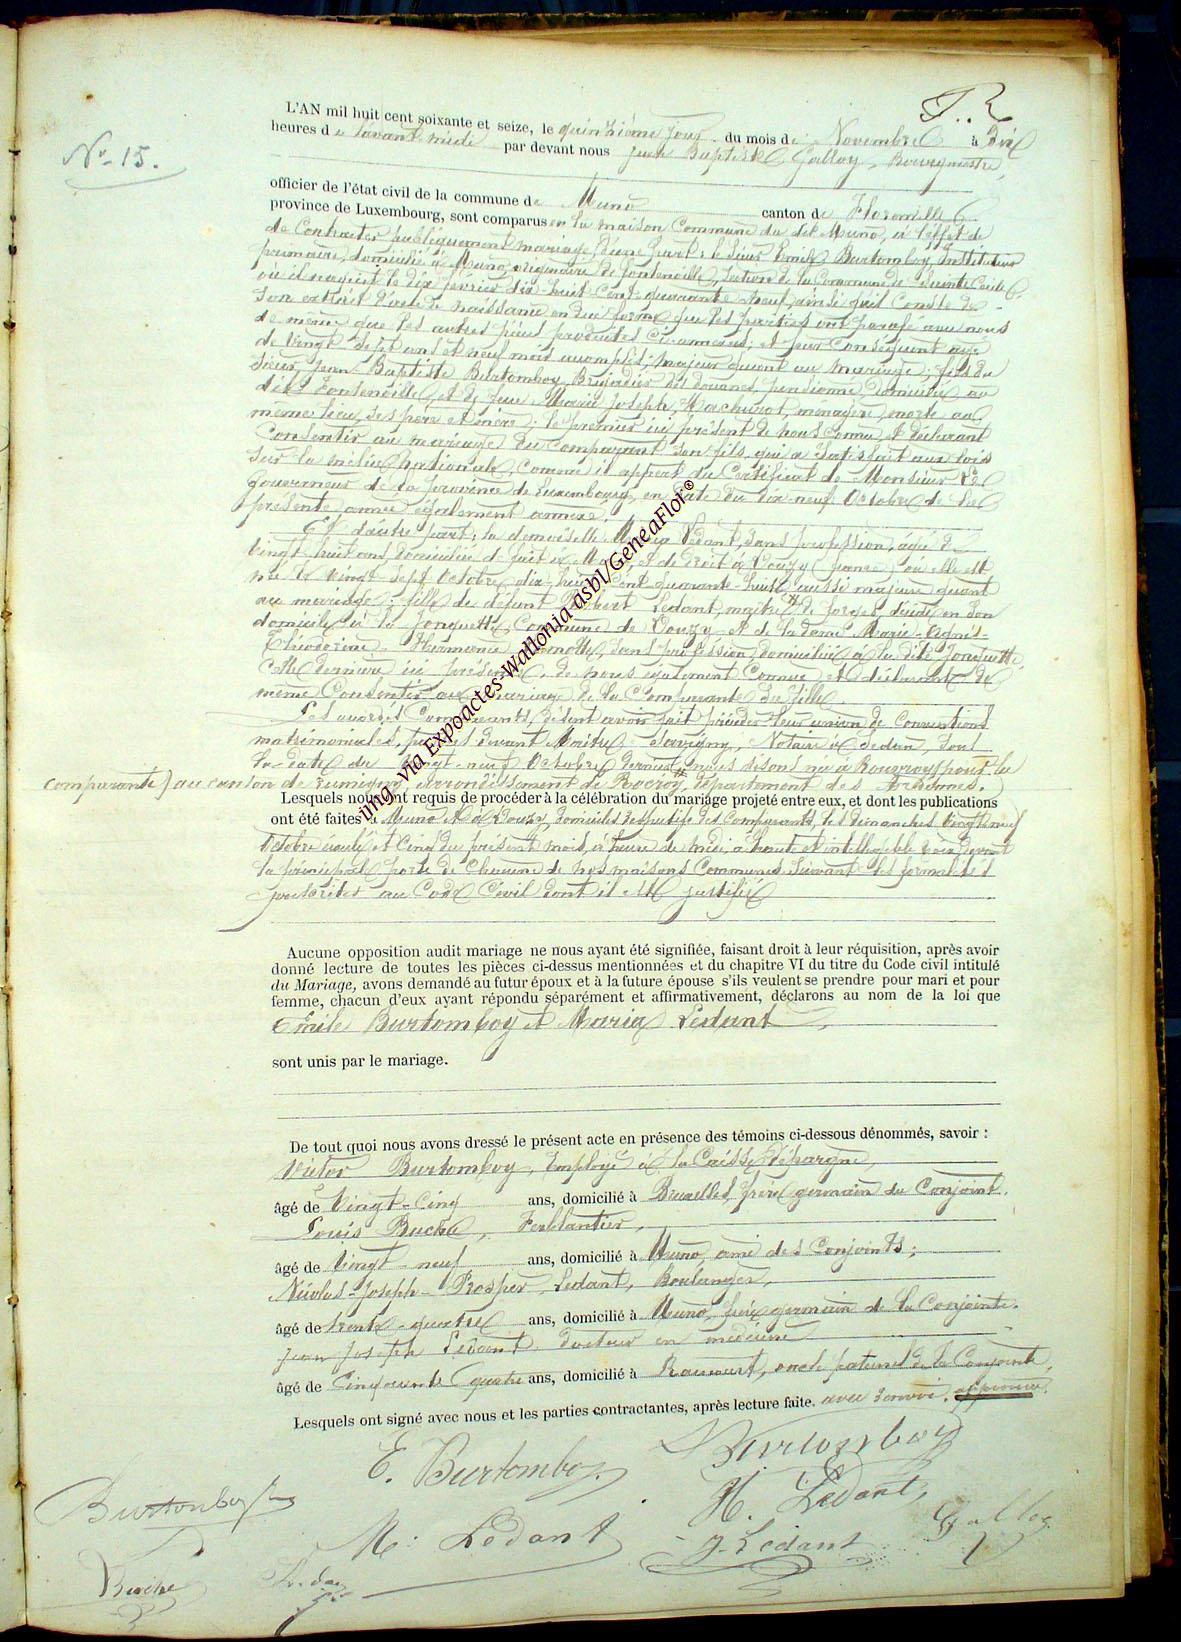 N° 15.
L'AN mil huit cent soixante et seize, le quinzième jour du mois de Novembre à dix
heures de l'avant midi par devant nous Jean Baptiste Galloy, Bourgmestre,
officier de l'état civil de la commune de Muno canton de Florenville
province de Luxembourg, sont comparus en la maison Commune du dit Muno, à l'effet de
de Contracter publiquement mariage, d'une part: le sieur Emile Burtomboy, Instituteur
primaire, domicilié à Muno, originaire de Fontenoille, section de la Commune de Sainte Cécile,
où il naquit le dix février dix huit Cent quarante neuf, ainsi qu'il Conste de
son extrait d'acte de naissance en due forme que les parties ont parafé avec nous
de même que les autres pièces produites ci-annexées; et par conséquent âgé
de vingt sept ans et neuf mois accomplis; majeur quant au mariage; fils du
sieur Jean Baptiste Burtomboy, Brigadier des douanes, pensionné, domicilié au
dit Fontenoille, et de feue Marie Joseph, Machurot, ménagère, morte au
même lieu, ses père et mère; le premier ici présent de nous Connu, et déclarant
Consentir au mariage du Comparant son fils, qui a satisfait aux lois
sur la milice Nationale, comme il appert du Certificat de Monsieur le
Gouverneur de la province de Luxembourg, en date du dix-neuf Octobre de la
présente année également annexé.
Et d'autre part: la demoiselle Maria Ledant, sans profession, âgée de
Vingt huit ans, domiciliée de fait à Muno, et de droit à Douzy (france) où elle est
née le vingt sept Octobre dix-huit Cent quarante-huit, aussi majeure quant
au mariage; fille de défunt Robert Ledant, maître de forges, décédé en son
domicile à la Jonquette, Commune de Douzy, et de la dame Marie-Agnès-
Théodorine Harmonie, sans profession, domiciliée à la dite Jonquette,
Cette dernière ici présente, de nous également Connue et déclarant de
même Consentir au mariage de la Comparante sa fille.
Les susdits Comparants, disent avoir fait précéder leur union de Conventions
matrimoniales, passées devant Maître Savigny, Notaire à Sedan, sous
la date du vingt-neuf Octobre dernier
comparante) au canton de Rumigny, arrondissement de Rocroy, Département des Ardennes.
Lesquels nous ont requis de procéder à la célébration du mariage projeté entre eux, et dont les publications
ont été faites à Muno et à Douzy, domiciles respectifs des Comparants, les dimanches vingt neuf
Octobre écoulé et Cinq du présent mois, à heure de midi, à haute et intelligible voix, devant
la principale porte de Chacune de nos maisons Communes, suivant les formalités
prescrites au Code Civil dont il est justifié
Aucune opposition audit mariage ne nous ayant été signifiée, faisant droit à leur réquisition, après avoir
donné lecture de toutes les pièces ci-dessus mentionnées et du chapitre VI du titre du Code civil intitulé
du Mariage, avons demandé au futur époux et à la future épouse s'ils veulent se prendre pour mari et pour
femme, chacun d'eux ayant répondu séparément et affirmativement, déclarons au nom de la loi que
Emile Burtomboy et Maria Ledant
sont unis par le mariage.
De tout quoi nous avons dressé le présent acte en présence des témoins ci-dessous dénommés, savoir :
Victor Burtomboy, Employé à la Caisse d'épargne,
âgé de Vingt-Cinq ans, domicilié à Bruxelles, frère germain du Conjoint.
Louis Buche, Ferblantier,
âgé de Vingt-neuf ans, domicilié à Muno, ami des Conjoints;
Nicolas-Joseph-Prosper Ledant, Boulanger,
âgé de trente-quatre ans, domicilié à Muno, frère germain de la Conjointe.
Jean Joseph Ledant, docteur en médecine
âgé de Cinquante quatre ans, domicilié à Raucourt, oncle paternel de la Conjointe.
Lesquels ont signé avec nous et les parties contractantes, après lecture faite. avec renvoi.
E. Burtomboy
V Burtomboy
Burtomboy
H. Ledant
M. Ledant
J. Ledant
Galloy
Buche
img. via Expoactes-Wallonia asbl/GeneaFlor®